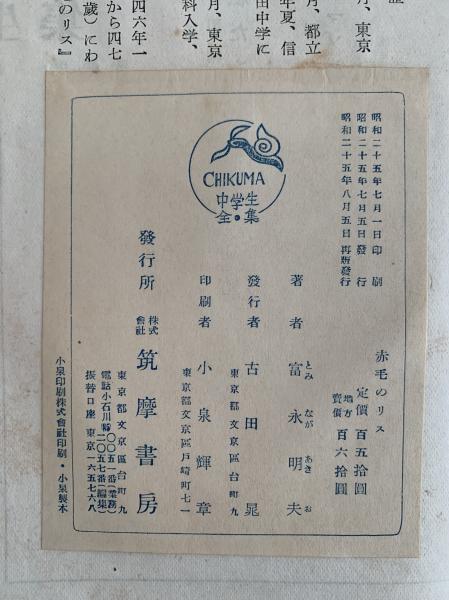 月、東京
年夏、信
田中学に
月、東京
科入学、
四六年一
から四七
歳）にわ
のリス』
昭和二十五年七月一日印刷
昭和二十五年七月五日発行
昭和二十五年八月五日再版發行
赤毛のリス
定價 百五拾圓
地方賣價 百六拾圓
CHIKUMA
中学生
全・集
著者 富永明夫
とみ なが あき お
發行者 古田晁
東京都文京區台町九
印刷者 小泉輝章
東京都文京區戸崎町七一
發行所 株式會社 筑摩書房
東京都文京區台町九
電話小石川
振替口座 東京一六五七六八
小泉印刷株式會社印刷・小泉製本